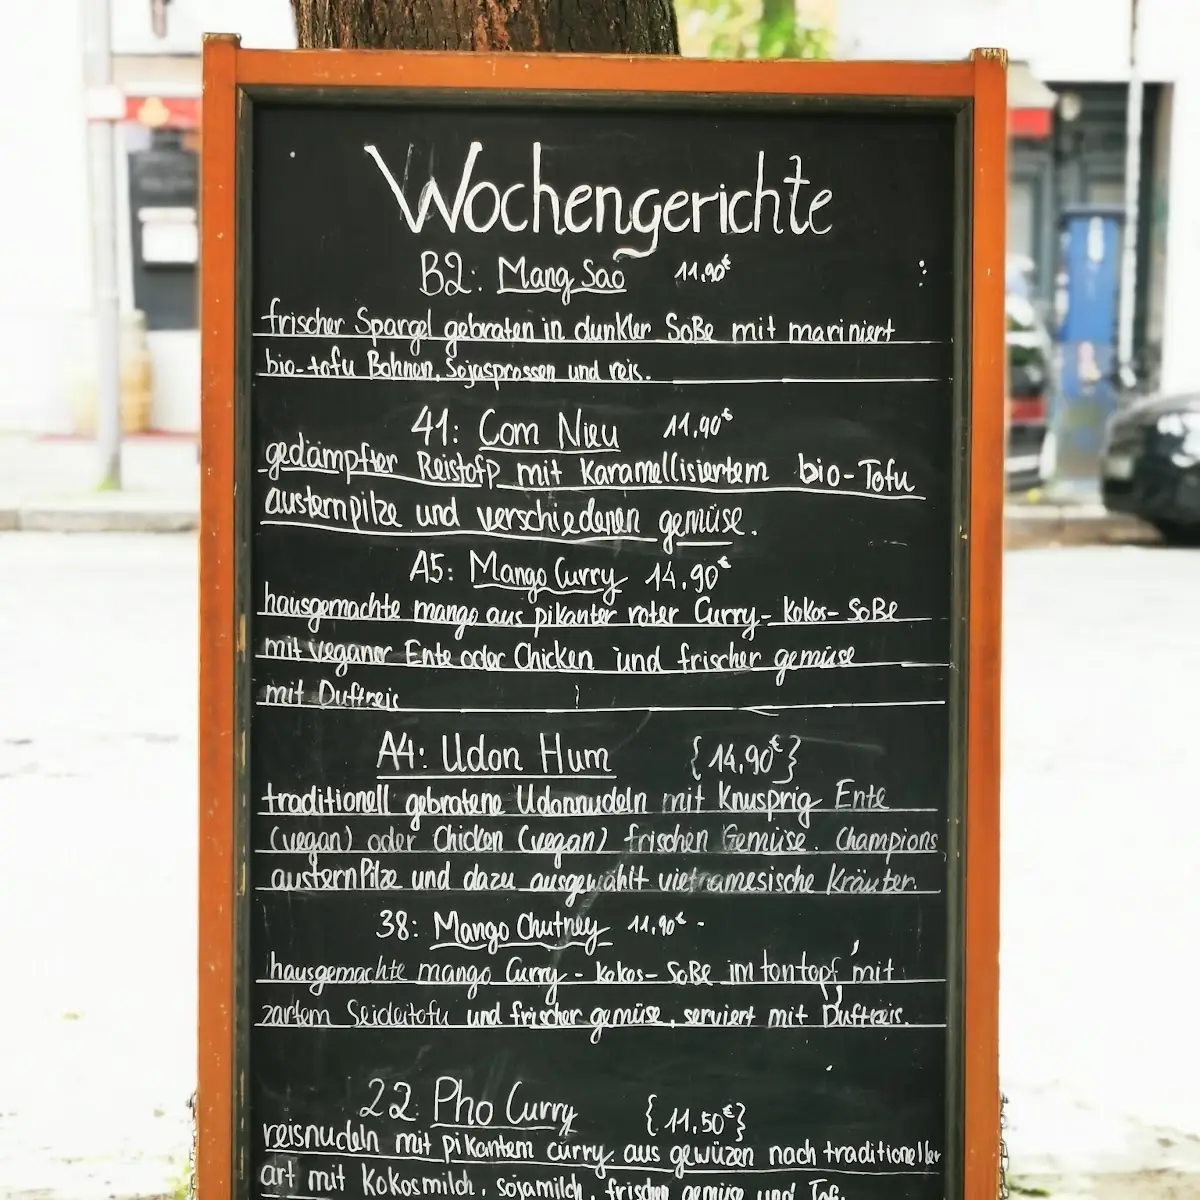 Wochengerichte
B2: Mang Sao 11,90€
frischer Spargel gebraten in dunkler Soße mit mariniert
bio-tofu Bohnen, Sojasprossen und reis.
41: Com Nieu 11,90€
gedämpfter Reistofp mit Karamellisiertem bio-Tofu
austernpilze und verschiedenen gemüse.
A5: Mango Curry 14,90€
hausgemachte mango aus pikanter roter Curry-Kokos-Soße
mit veganer Ente oder Chicken und frischer gemüse
mit Duftreis
A4: Udon Hum {14,90€}
traditionell gebratene Udonnudeln mit Knusprig Ente
(vegan) oder Chicken (vegan) frischen Gemüse. Champions
austernPilze und dazu ausgewählt vietnamesische Kräuter.
38: Mango Chutney 11,90€ -
hausgemachte mango Curry-Kokos-Soße im tontopf mit
zartem Seideitofu und frischer gemüse, serviert mit Duftreis.
22 Pho Curry {11,50€}
reisnudeln mit pikantem curry aus gewüzen nach traditioneller
art mit Kokosmilch, sojamilch, frischen gemüse und Tofu